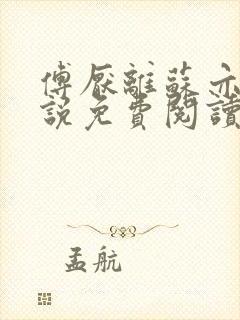 傅厭離蘇亦
說免費閱讀
孟航